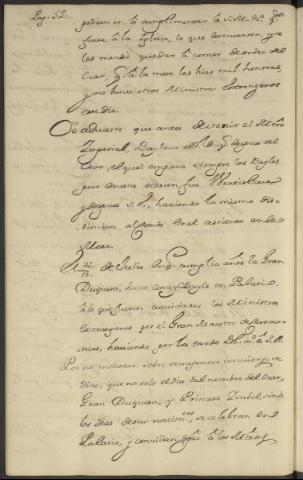 Pag. 52.
podian ir à cumplimentar à S. M. Cª. qdo
fuese à la Iglesia, lo que executaron, y se
les mandò quedar à comer de orden del
Czar, qe. à la mesa les hizo mil honras,
y no huvo otros Ministros Extrangeros
ese dia.
Se advierte que antes de venir el Mtro
Imperial, baylava el Duq. despues del
Czar, el qual empieza siempre los bayles
pero en esta ocasion fue Wratislau
y despues S. E., haciendo la misma dis-
tincion al Conde en el asiento en la
Mesa.
A 22/11 de Julio Aº. cumplia años la Gran
Duquesa, huvo cena y bayle en Palacio,
à lo que fueron convidados los Ministros
Extrangeros por el Gran Maestro de Ceremo-
nias, haviendo por la tarde
Por no molestar sobre semejantes
dias, que no solo el dia del nombre del Czar,
Gran Duquesa, y Princesa Isabel, sino
los dias de sus nacim.tos, se celebran en
Palacio, y convidan a los Mtros